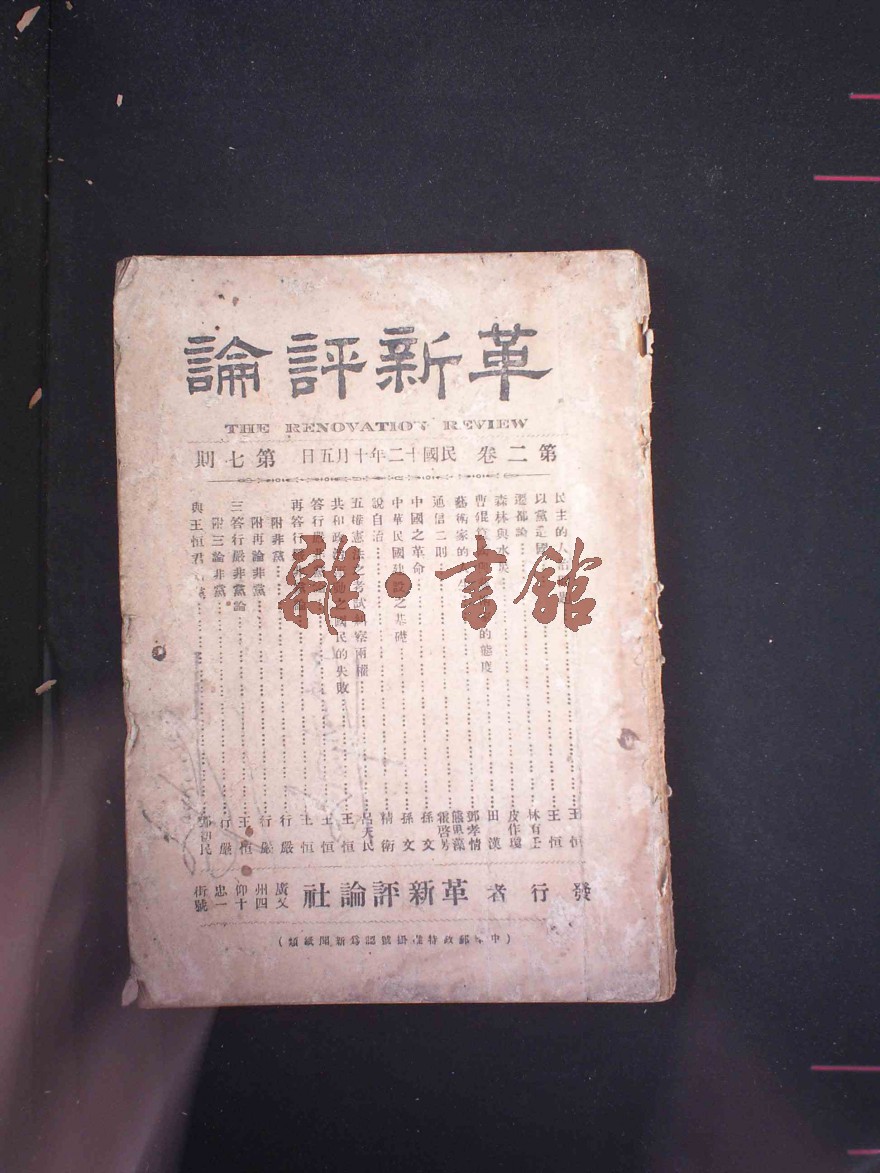 革新評論
THE RENOVATION REVIEW
第二卷 民國十二年十月五日 第七則
民主的人 王恒
以黨造國 王恒
遷都論 林有壬
森林與水 皮作瓊
曹錕 的態度 田漢
藝術家的 郭孝情
通信二則 張啓
中國之革命 孫文
中華民國建設之基礎 孫文
說自治 精衛
五權憲法 考試 察兩權 呂天民
共和政治 國民的失敗 王恒
答行嚴 王恒
再答行嚴 王恒
附非黨 行嚴
附再論非黨 行嚴
三答行嚴非黨論 王恒
附三論非黨 行嚴
與王恒君 鄧初民
發行者 革新評論社 廣州仰忠街 四十一號
(中 郵政特准掛號認爲新聞紙類)
雜·書館